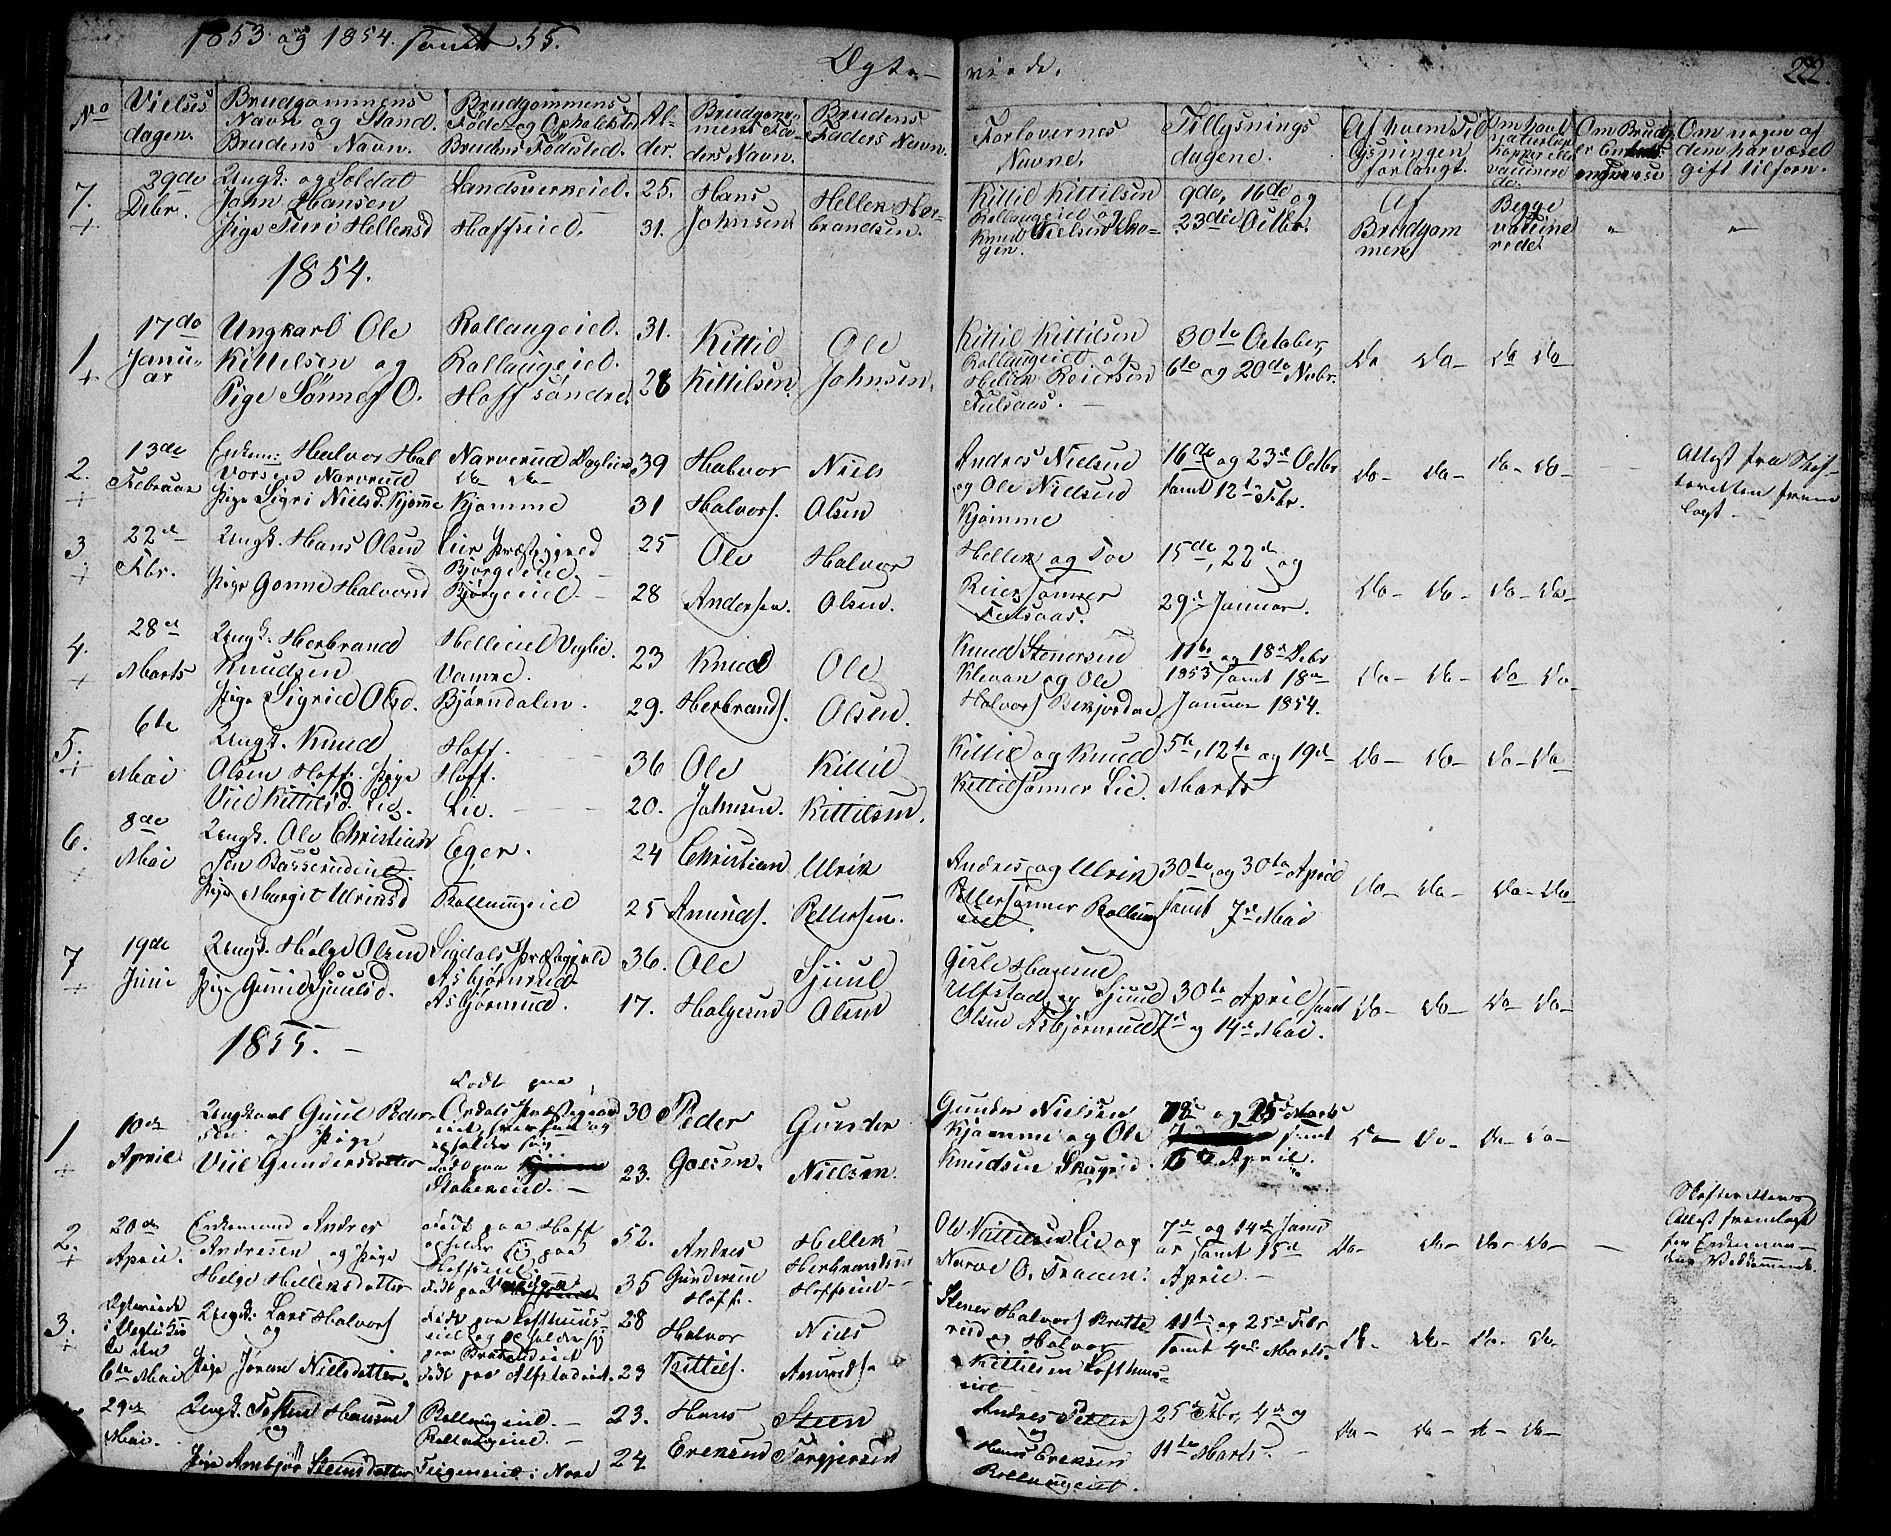 1853 og 1854 samt 55.
Ægte-
viede.
22.
No
Vielses
dagen.
Brudgommens
Navn og Stand.
Brudens Navn.
Brudgommens
Føde- og Opholdssted
Brudens Fødested.
Al-
der.
Brudgom-
mens Fa-
ders Navn.
Brudens
Faders Navn.
Forlovernes
Navne.
Tillysnings
dagene.
Af hvem Til
lysningen
forlangt.
Om nogen af
dem har været
gift tilforn.
7.
29de
Debr.
Ungk. og Soldat
John Hansen
Pige Turi Hellensd
Landsverkeiet.
Hoffseiet.
25.
31.
Hans
Johnsen
Hellek Her-
brandsen.
Kittil Kittilsen
Rollaugeiet og
Knud Nielsen Sko-
gen.
9de, 16de og
23die Octbr.
Af
Brudgom
men
Begge
vaccine
rede
1854.
1
17de
Janu-
ar
Ungkarl Ole
Kittelsen og
Pige Sønnef O.
Rollaugeiet.
Rollaugeiet.
Hoff søndre.
31.
28
Kittil
Kittilsen.
Ole
Johnsen.
Kittil Kittilsen
Rollaugeiet og
Hellek Reiersen
Tulsaas.
30te October,
6te og 20de Novbr.
Do Do-
Do Do-
2.
13de
Februar
Enkem: Halvor Hal
vorsen Narverud
Pige Sigri Nielsd. Kjømme
Narverud Daglien
Do Do-
Kjømme
39
31
Halvor
Halvors.
Niels
Olsen
Andres Nielsen
og Ole Nielsen
Kjømme
16de og 23de Octbr
samt 12te Febr.
Do- Do-
Do- Do-
Attest fra Skif-
teretten frem
lagt.
3
22de
Fbr.
Ungk. Hans Olsen
Pige Gonne Halvorsd
Lier Præstegjeld
Bjørgeeiet
Bjørgeeiet.
25
28
Ole
Andersen.
Halvor
Olsen.
Hellek og Toe
Reiersønner
Tulsaas.
15de, 22de og
29de Januar.
Do- Do-
Do- Do-
4.
28de
Marts
Ungk. Herbrand
Knudsen
Pige Sigrid Olsd.
Hellieiet Veglie.
Vamre.
Bjørndalen.
23
29.
Knud
Herbrands.
Ole
Olsen.
Knud Stenersen
Klevan og Ole
Halvors
11te og 18de Debr
1853 samt 18de
Januar 1854.
Do- Do-
Do Do-
5.
6te
Mai
Ungk. Knud
Olsen Hoff. Pige
Viil Kittilsd. Lie.
Hoff.
Hoff.
Lie.
36
20.
Ole
Johnsen.
Kittil
Kittilsen.
Kittil og Knud
Kittilsønner Lie.
5te, 12te og 19de
Marts
Do- Do-
Do- Do-
6.
8de
Mai
Ungk. Ole Christian
sen Basserudeiet
Pige Margit Ulriksd
Eger.
Rollaugeiet
24
25
Christian
Amunds.
Ulrik
Pettersen.
Andres og Ulrik
Pettersønner Rollaug
eiet.
30te og 30te April
samt 7de Mai
Do- Do-
Do- Do-
7
19de
Juni
Ungk. Helge Olsen
Pige Gunild Sjuulsd.
Sigdals Præstegjeld
Asbjørnrud
Asbjørnrud.
36.
17.
Ole
Halgersen
Sjuul
Olsen
Ulfstad og Sjuul
Olsen Asbjørnrud
30te April samt
7de og 14de Mai.
Do- Do-
Do- Do-
1855.
1
10de
April
Ungkarl Guul Peder-
sen og Pige
Viil Gundersdatter
Født paa
Ordals Præstegaard
eiet, og
opholder sig
Født paa
Stabekeiet.
30
23.
Peder
Goesen.
Gunder
Nielsen.
Gunder Nielsen
Kjømme og Ole
Knudsen
og 25de Marts
samt
April.
Do- Do-
Do- Do-
2.
20de
April.
Enkemand Andres
Andresen og Pige
Helge Hellensdatter
Født paa Hoff
opholder sig paa
Hoffseiet
Født paa
52.
35
Andres
Gundersen
Hoff.
Hellek
Herbrandsen
Hoffseiet
Ole Kittilsen Lie og
Narve O. Traaen.
7de og 14de Janu
ar samt 15de
April.
Do- Do-
Do- Do-
Skifterettens
Attest fremlagt
for Enkeman-
dens Vedkommende.
3.
Ægteviede
i Veglie Kir
ke den
6te Mai
Ungk. Lars Halvors
og
Pige Jøran Nielsdatter.
Født paa Lofthuus-
eiet og opholder sig
paa
Født paa Ulfstadeiet.
28
23
Halvor
Kittils.
Niels
Amunds.
Stener Halvors Bratte
rud og Halvor
Kittilsen Lofthuus-
eiet
11te og 25de Febr
samt 4de Marts.
Do- Do-
Do- Do-
29de
Mai.
Ungk. Hansen
og
Pige Ambjør Steensdatter
Rollaugeiet.
Rollaugeiet.
i Nore
23.
24
Hans
Ereksen
Steen
Torgjersen
Andres Petters
og
Hans Ereksen
Rollaugeiet.
25de Febr, 4de og
11te Marts.
Do- Do-
Do- Do-